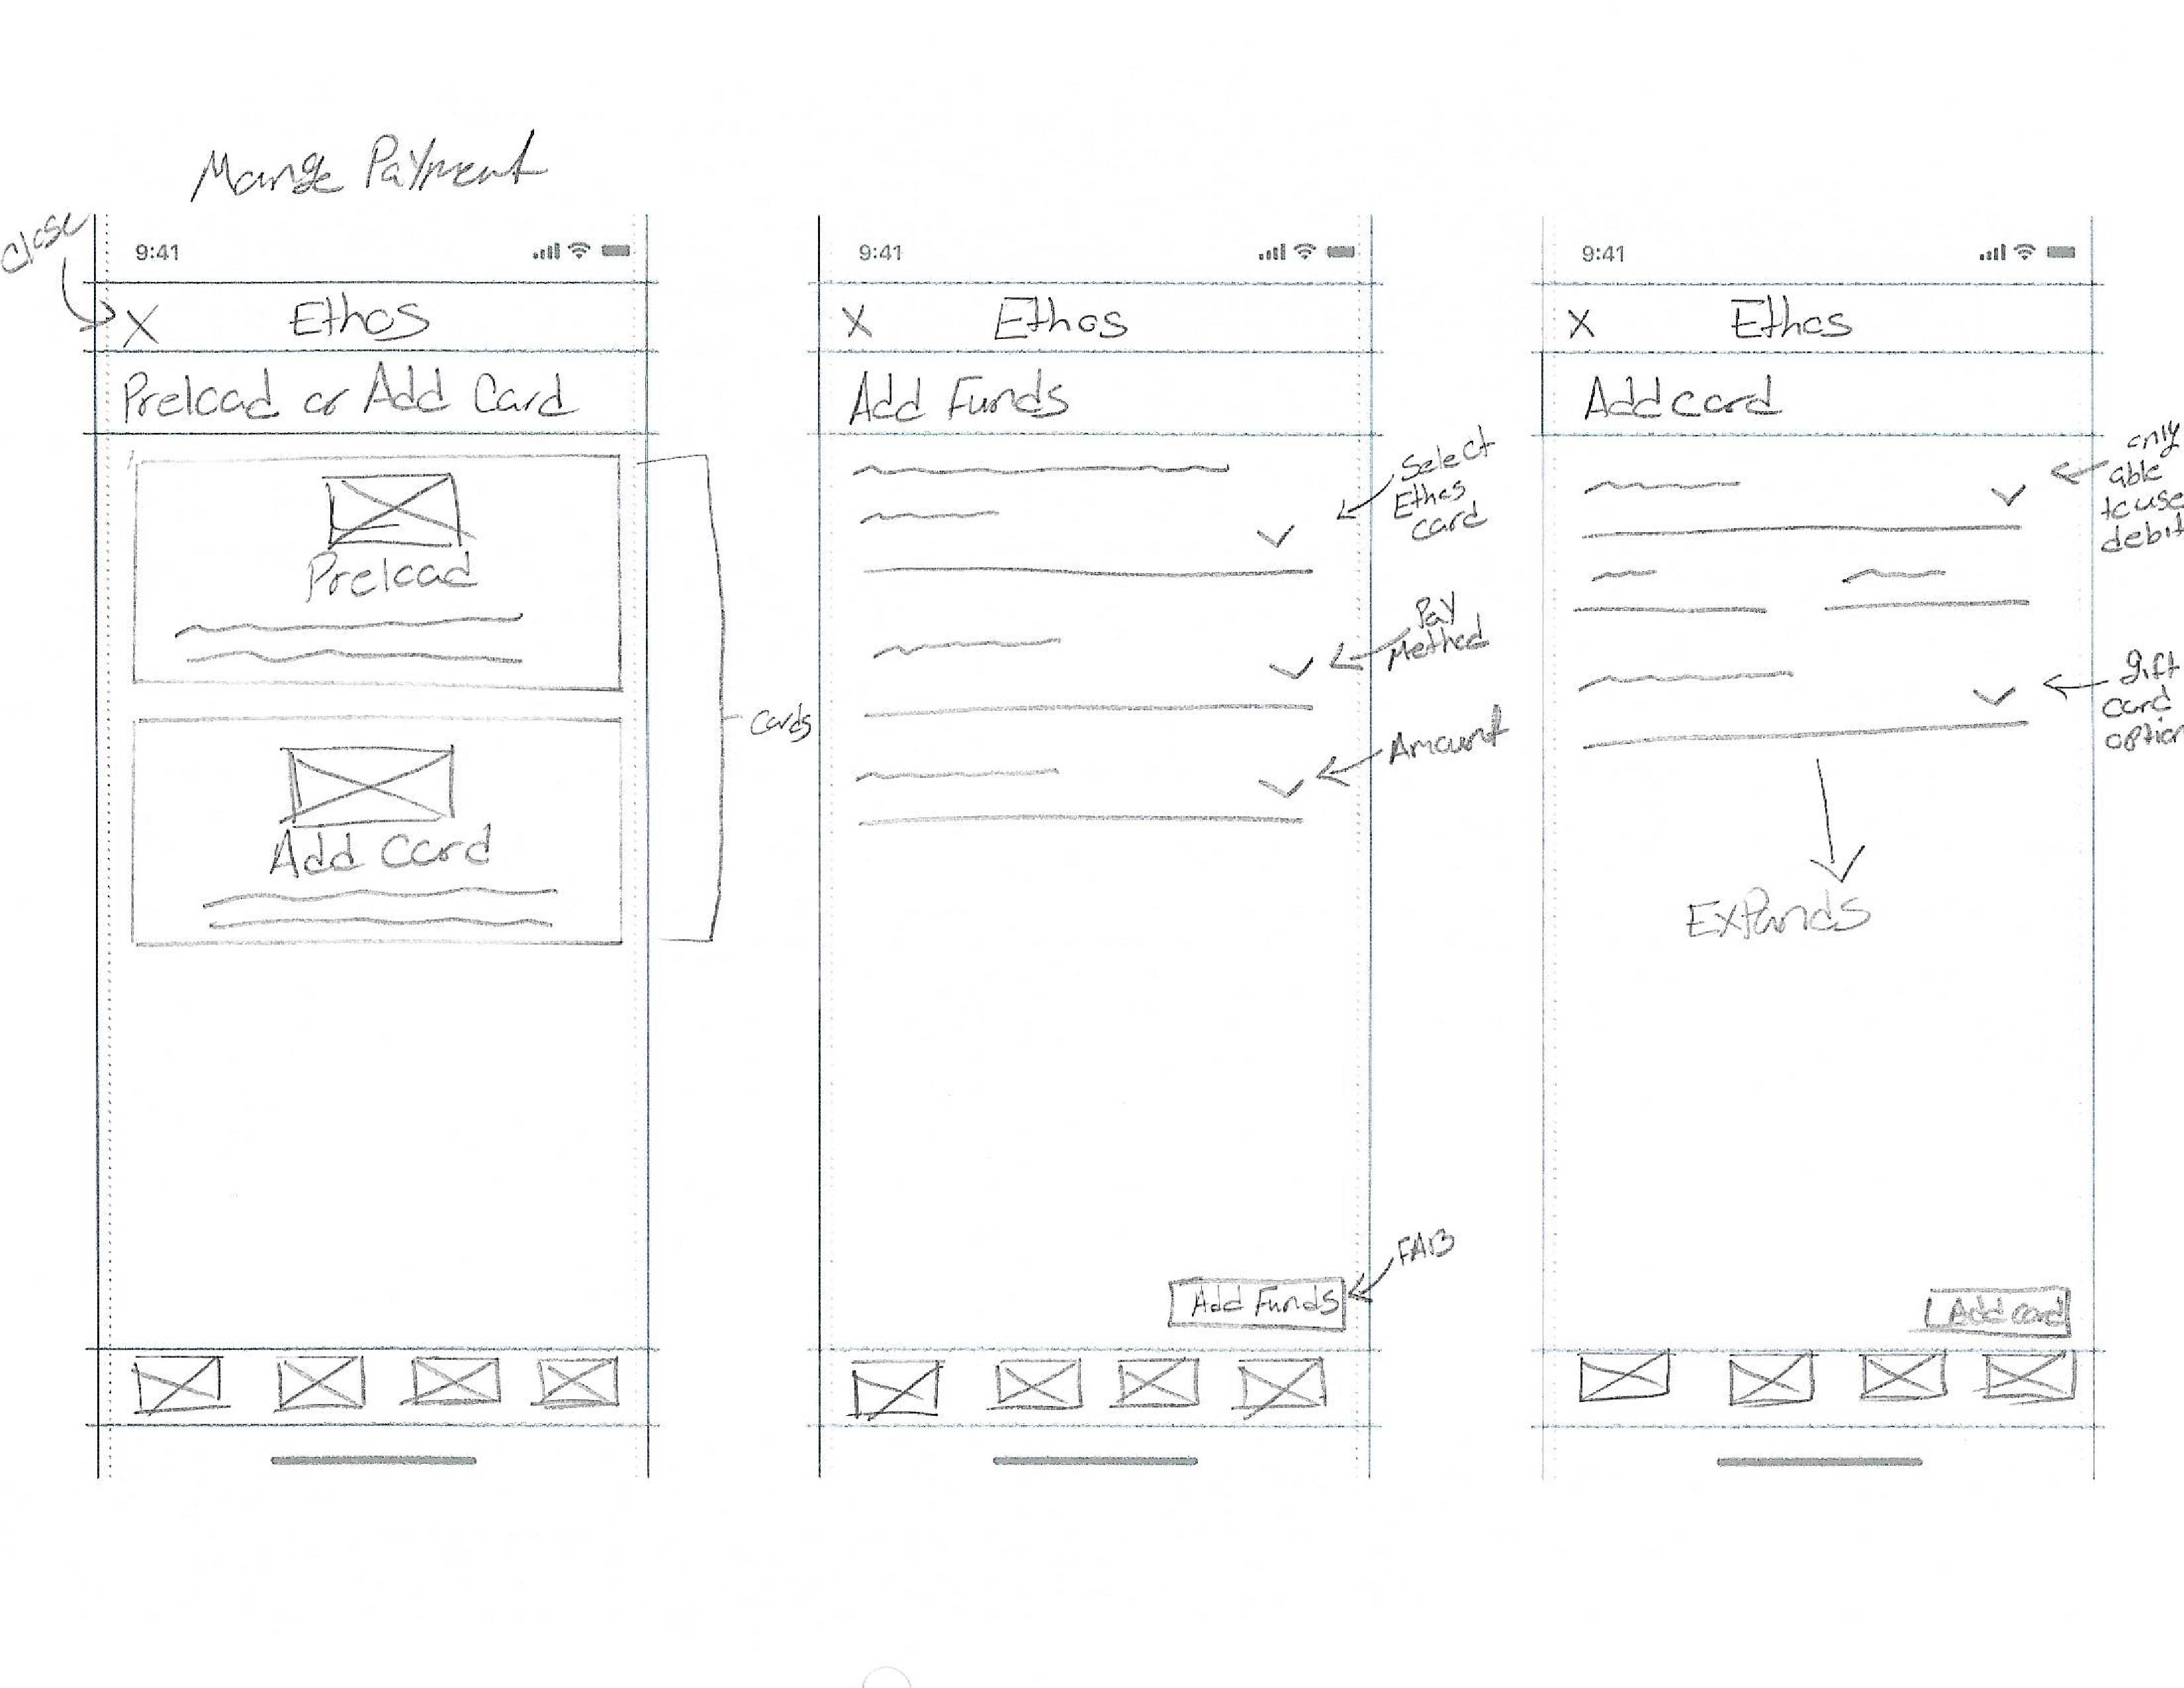 Mange Payment
close
9:41
X Ethos
Preload or Add Card
Preload
Add Card
Cards
9:41
X Ethos
Add Funds
Select
Ethos
card
Pay
Method
Amount
FAB
Add Funds
9:41
X Ethos
Add card
only
able
to use
debit
gift
card
option
Expands
Add card